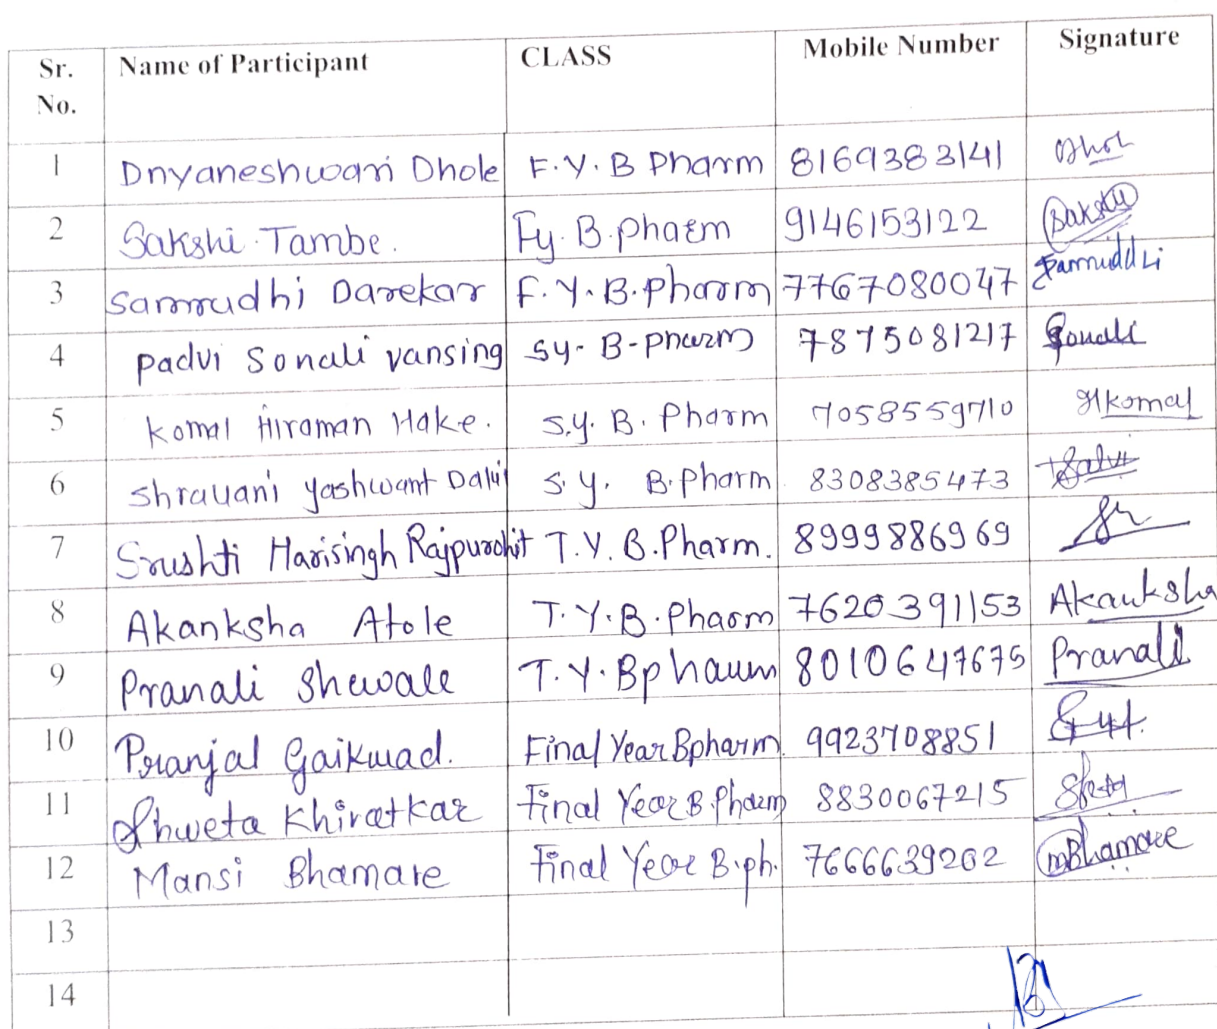 Sr. No. Name of Participant CLASS Mobile Number Signature
1 Dnyaneshwari Dhole F.Y.B Pharm 8169383141
2 Sakshi Tambe. Fy. B.pharm 9146153122 Sakshi
3 Samrudhi Darekar F.Y.B.pharm 7767080047
4 Padvi Sonali vansing Sy- B-pharm 7875081217 Sonali
5 Komal Hiraman Hake. S.y. B. Pharm 7058559710 Hkomal
6 Shravani yashwant Dalvi S.y. B.pharm 8308385473
7 Srushti Harisingh Rajpurohit T.Y.B.Pharm. 8999886969
8 Akanksha Atole T.Y.B.Pharm 7620391153 Akanksha
9 Pranali Shewale T.Y.Bpharm 8010647675 Pranali
10 Pranjal Gaikwad. Final Year Bpharm. 9923708851
11 Shweta Khiratkar Final Year B.Pharm 8830067215
12 Mansi Bhamare Final Year B.ph. 7666639262 mBhamare
13
14